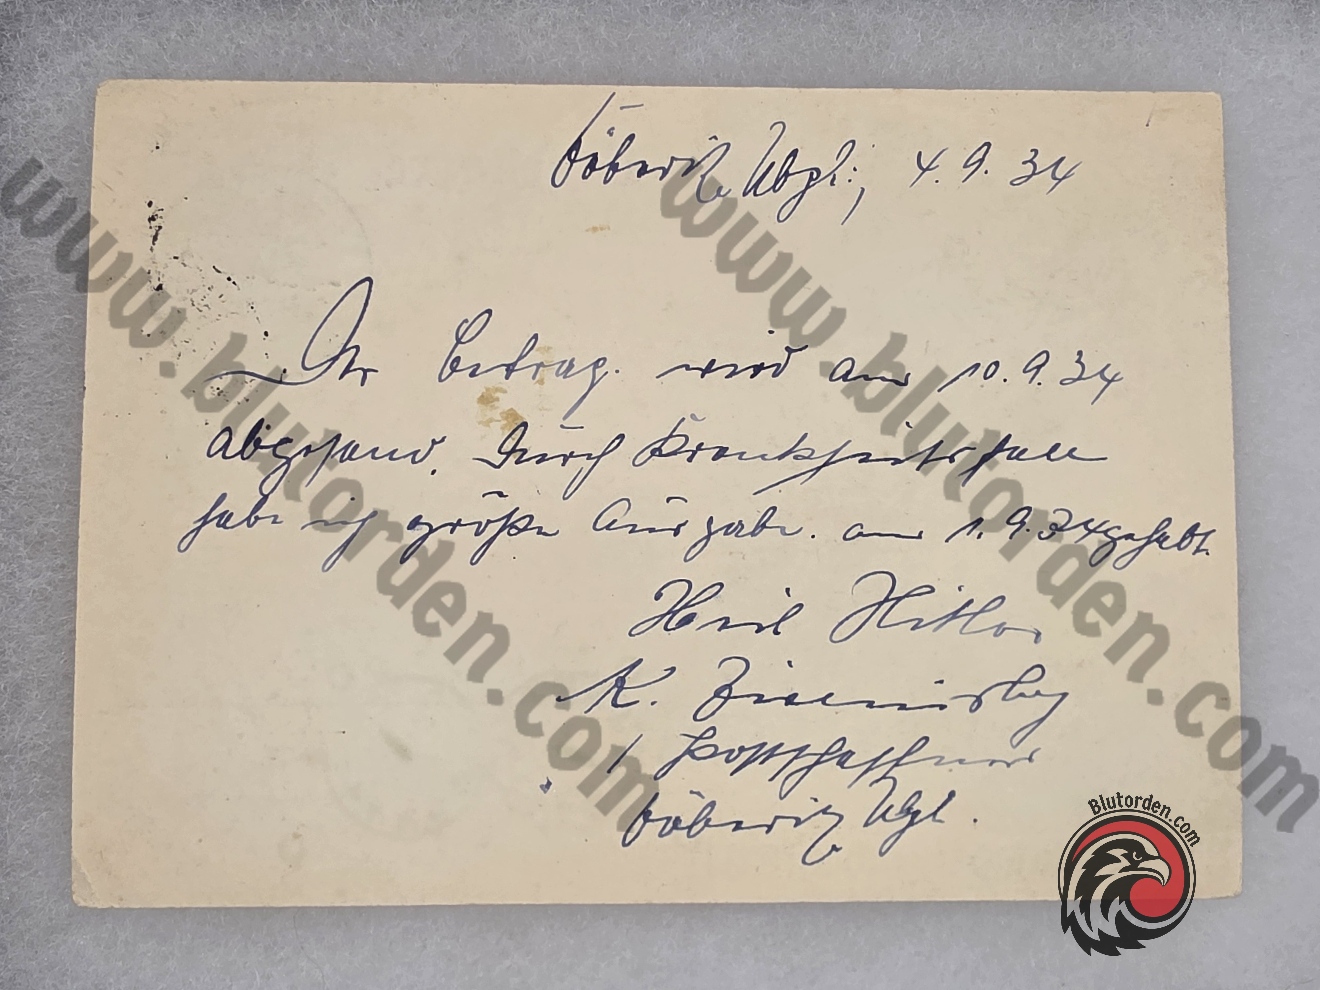 Döberitz Übpl:, 4.9.34
Ihr Betrag. wird am 10.9.34
abgesand. Durch Krankheitsfall
habe ich größe Ausgabe. am 1.9.34 gehabt.
Heil Hitler
K.
Postschaffner
Döberitz Übpl.
www.blutorden.com
www.blutorden.com
Blutorden.com